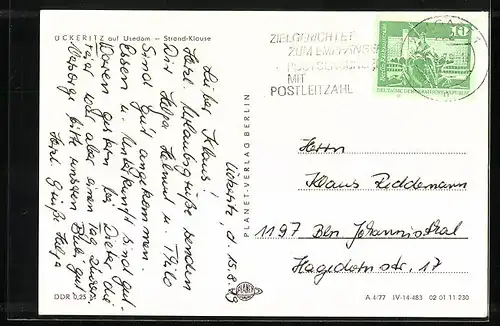 ÜCKERITZ auf Usedom – Strand-Klause
Ückeritz, d. 15.8.79
Lieber Klaus!
Herzl. Urlaubsgrüße senden
Dir Helga Helmut u. Thilo
Sind gut angekommen.
Essen u. Unterkunft sind gut.
Waren gestern bei Dieter, die
Feier war aber einen Tag zuvor.
Versorge bitte unseren gut
Herzl. Grüße Helga
DDR 0,25
PLANET-VERLAG BERLIN
PLANET
ZIELGERICHTET
ZUM EMPFÄNGER
POSTSENDUNGEN
MIT
POSTLEITZAHL
10
DEUTSCHE DEMOKRATISCHE REPUBLIK
Herrn
Klaus Reddemann
1197 Bln Johannisthal
Hagedornstr. 17
A 4/77 IV-14-483 02 01 11 230